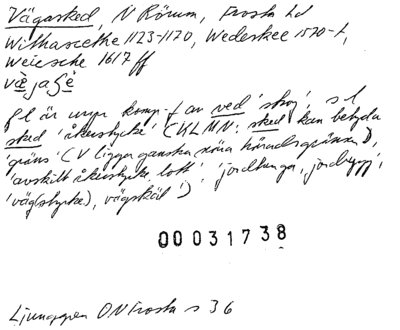 Vägasked, N Rörum, Frosta hd
Withascethe 1123-1170, Wedeskee 1570-t,
Weiesche 1617 ff
fl är urspr komp-f av ved 'skog', s l
sked 'åkerstycke' (KLMN: sked kan betyda
'gräns' (V ligger ganska nära häradsgränsen),
'avskilt åkerstycke, lott', jordtunga, jordrygg',
'väg(stycke), vägskäl')
00031738
Ljunggren ON Frosta s 36